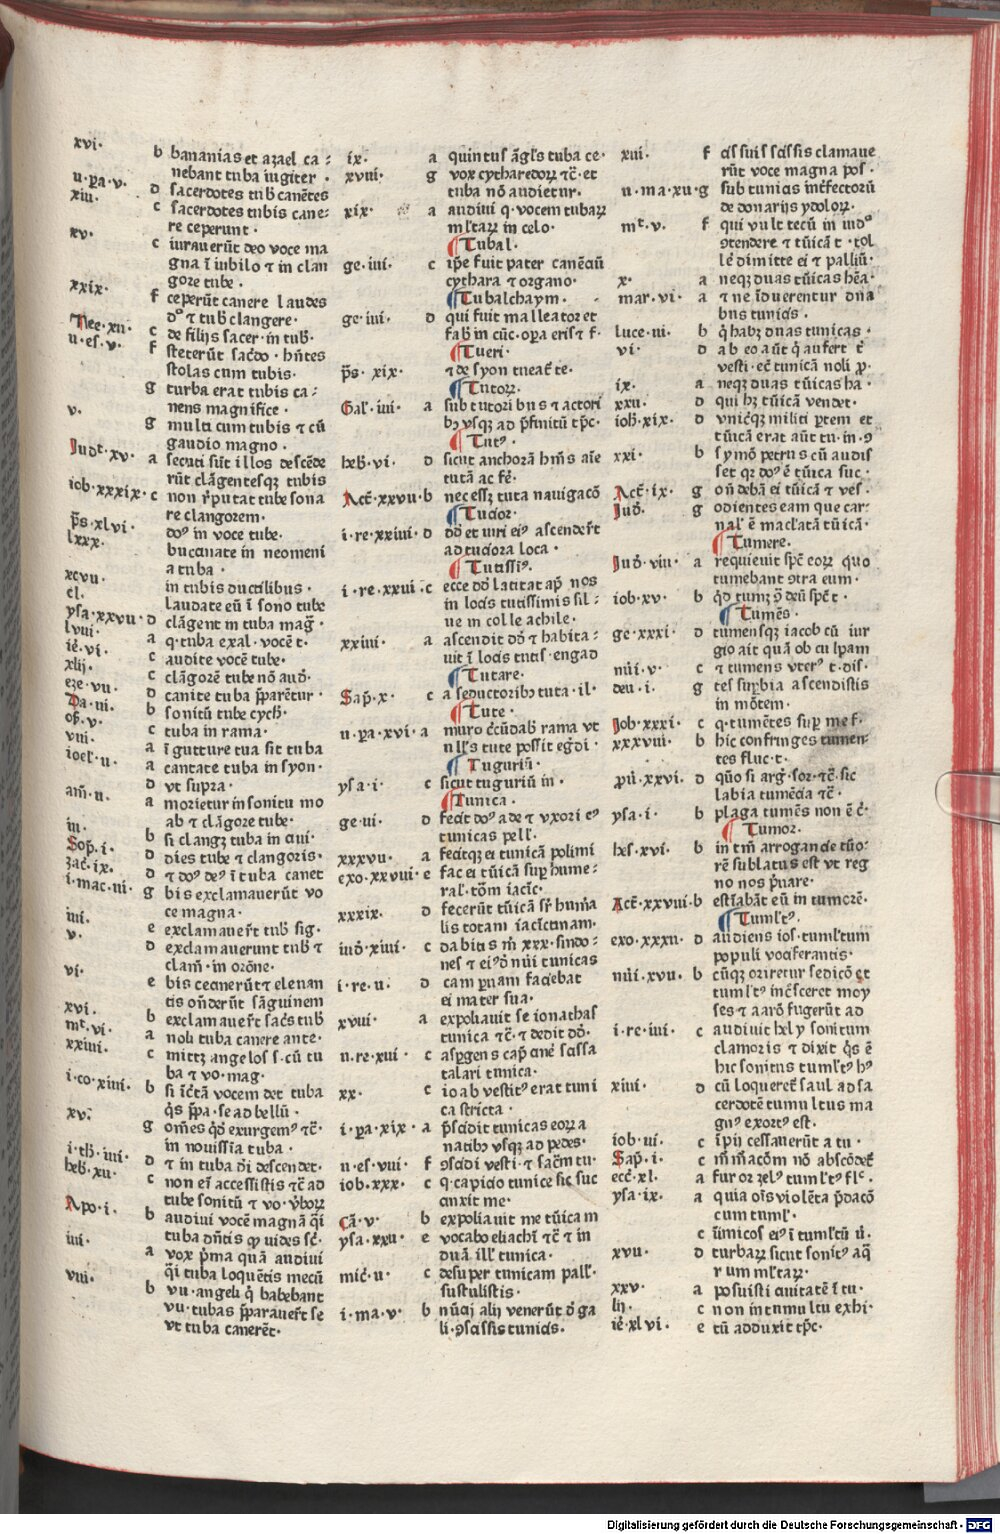 xvi· b bananias et azael ca⸗
nebant tuba iugiter ·
u·pa·v· d sacerdotes tub̄ canētes
xiii· c sacerdotes tubis cane⸗
re ceperunt ·
xv· c iurauerūt deo voce ma
gna ī iubilo ⁊ in clan
gore tube ·
xxix· f ceperūt canere laudes
d° ⁊ tub̄ clangere·
Nee·xii· c de filijs sacer·in tub̄·
u·es·v· f steterūt sac̄do·hn̄tes
stolas cum tubis·
g turba erat tubis ca⸗
nens magnifice ·
v· g multi cum tubis ⁊ cū
gaudio magno ·
Judt·xv· a secuti sūt illos descēde
rūt clāgentesqꝫ tubis
iob·xxxix· c non r̄putat tube sona
re clangorem·
ps̄·xlvi· do⁹ in voce tube·
lxxx· buccinate in neomeni
a tuba ·
xcvii· in tubis ductilibus ·
cl· laudate eū ī sono tube
ysa·xxvii· d clāgent in tuba mag̃ ·
lviii· a q·tuba exal·vocē t·
ie·vi· c audite vocē tube·
xlij· c clāgorē tube nō aud̄·
eze·vii· d canite tuba p̄parētur ·
Da·iii· b sonitū tube cych̄·
os̄·v· c tuba in rama·
viii· a ī gutture tua sit tuba
ioel·ii· a cantate tuba in syon·
d vt supra·
am̄·ii· a morietur in sonitu mo
ab ⁊ clāgore tube·
iii· b si clangꝫ tuba in ciui·
Sop̄·i· d dies tube ⁊ clangoris·
zac̄·ix· d ⁊ do⁹ de⁹ ī tuba canet
i·mac·iii· g bis exclamauerūt vo
ce magna·
iiii· e exclamauer̄t tub̄ sig·
v· d exclamauerunt tub̄ ⁊
clam̄·in orōne·
vi· e bis cecinerūt ⁊ elenan
tis ondērūt sāguinem
xvi· b exclamauer̄t sac̄s tub̄
mt̄·vi· a noli tuba canere ante·
xxiiii· c mittꝫ angelos s·cū tu
ba ⁊ vo·mag·
i·co·xiiii· b si ic̄tā vocem det tuba
q̄s p̄pa·se ad bellū ·
xv· g om̄es q̄d exurgem⁹ ⁊c̄·
in nouissīa tuba ·
i·th̄·iiii· d ⁊ in tuba d̄i descendet·
heb̄·xii· c non em̄ accessistis ⁊c̄ ad
tube sonitū ⁊ vo·v̄boꝝ
Apo·i· b audiui vocē magnā q̄i
tuba dn̄tis q̄ uides sc̄·
iiii· a vox p̄ma quā audiui
q̄i tuba loquētis mecū
viii· b vii·angeli q̄ habebant
vii·tubas p̄parauer̄t se
vt tuba canerēt·
ix· a quintus āgl̄s tuba ce·
xviii· g vox cytharedoꝝ ⁊c̄·et
tuba nō audietur·
xix· a audiui q·vocem tubaꝝ
ml̄taꝝ in celo·
¶Tubal·
ge·iiii· c ip̄e fuit pater canēciū
cythara ⁊ organo·
¶Tubalchaym·
ge·iiii· d qui fuit malleator et
fab̄ in cūc·op̄a eris ⁊ f·
¶Tueri·
ps̄·xix· ⁊ de syon tueat̄ te·
¶Tutoꝝ·
Gal̄·iiii· a sub tutoribus ⁊ actori
bꝫ vsqꝫ ad p̄finitū tp̄c·
¶Tut⁹·
heb̄·vi· d sicut anchorā hm̄s aīe
tutā ac fē·
Act̄·xxvii· b nec essꝫ tuta nauigacō
¶Tucior·
i·re·xxiiii· d dd̄ et uiri ei⁹ ascender̄t
ad tuciora loca ·
¶Tutissi⁹·
i·re·xxvi· c ecce dd̄ latitat ap̄ nos
in locis tutissimis sil⸗
ue in colle achile·
xxiiii· a ascendit dd̄ ⁊ habita⸗
uit ī locis tutis·engad
¶Tutare·
Sap̄·x· c a seductoribꝫ tuta·il·
¶Tute·
u·pa·xvi· a muro c̄cūdab̄ rama vt
nll̄s tute possit eg̃di ·
¶Tuguriū·
ysa·i· c sicut tuguriū in ·
¶Tunica·
ge·iii· d fecit do⁹ ade ⁊ vxori e⁹
tunicas pell̄·
xxxvii· a fecitqꝫ ei tunicā polimi
exo·xxviii· e fac ei tūicā sup̄ hume⸗
ral̄·tōm iacīc·
xxxix· d fecerūt tūicā sr̄ hum̄a
lis totam iacīctinam·
iud̄·xiiii· c dabitis m̄ xxx·sindo⸗
nes ⁊ ei⁹d̄ nūi tunicas
i·re·ii· d ca m paruam faciebat
ei mater sua·
xviii· a expoliauit se ionathas
tunica ⁊c̄·⁊ dedit dd̄·
ii·re·xiii· c asp̄gens cap̄ cinē scissa
talari tunica·
xx· c ioab vestit⁹ erat tuni
ca stricta ·
i·pa·xix· a p̄scidit tunicas eoꝝ a
natibꝫ vsqꝫ ad pedes·
ii·es·viii· f ꝯscidi vesti·⁊ sac̄m tu·
iob·xxx· c q·capicio tunice sic suc
cinxit me·
Cā·v· b expoliauit me tūicam
ysa·xxii· e vocabo eliachī ⁊c̄ ⁊ in
duā·ill̄ tunica·
mic̄·ii· c desuper tunicam pall̄·
sustulistis·
i·ma·v· b nūcij alij venerūt d̄ ga
li·ꝯscissis tunicis·
xiii· f cis suis scissis clamaue
rūt voce magna pos̄·
ii·ma·xii· g sub tunicis int̄fectorū
de donarijs ydoloꝝ·
mt̄·v· f qui vult tecū in iud°
ꝯtendere ⁊ tūicā t·tol
lē dimitte ei ⁊ palliū·
x· a neqꝫ duas tūicas hēa·
mar·vi· a ⁊ ne īduerentur dua
bus tunicis·
luce·iii· b q̄ habꝫ duas tunicas·
vi· d ab eo aūt q̄ aufert t̄
vesti·ec̄ tunicā noli p̄·
ix· a neqꝫ duas tūicas ha·
xxii· d qui hꝫ tūicā vendet·
ioh̄·xix· d vnicuiqꝫ militi p̄tem et
tūicā erat aūt tu·in·ꝯ
xxi· b symō petrus cū audis
set qꝛ do⁹ ē tūica suc·
Act̄·ix· g on̄debā ei tūicā ⁊ ves·
Jud̄· g odientes eam que car·
nal̄ ē maclātā tūicā·
¶Tumere·
Jud̄·viii· a requieuit sp̄c eoꝝ quo
tumebant ꝯtra eum·
iob·xv· b q̄d tumꝫ ꝯ̄ deū sp̄c t·
¶Tumēs·
ge·xxxi· d tumensqꝫ iacob cū iur
gio ait quā ob culpam
nūi·v· c ⁊ tumens vter⁹ t·dis·
deu·i· g tes sup̄bia ascendistis
in mōtem·
Job·xxxi· c q·tumētes sup̄ me f·
xxxviii· b hic confringes tumen⸗
tes fluc·t·
p̄u·xxvi· d q̄uo si arg̃·sor·⁊c̄·sic
labia tumēcia ⁊c̄ ·
ysa·i· b plaga tumēs non ē c̄·
¶Tumor·
hes̄·xvi· b in tm̄ arrogancie tūo·
rē sublatus est vt reg
no nos p̄uare·
Act̄·xxviii· b estīabāt eū in tumorē·
¶Tumlt⁹·
exo·xxxii· d audiens ios·tumltum
populi vociferantis·
nūi·xvii· b cūqꝫ oriretur sedicō et
tumlt⁹ inc̄sceret moy
ses ⁊ aarō fugerūt ad
i·re·iiii· c audiuit hely sonitum
clamoris ⁊ dixit q̄s ē
hic sonitus tumlt⁹ h⁹
xiiii· d cū loqueret̄ saul ad sa
cerdotē tumultus ma
gn⁹ exort⁹ est·
iob·iii· c īpij cessauerūt a tu ·
Sap̄·i· c m̄m̄acōm nō abscōdet̄
ecc̄·xl· a furor zel⁹ tumlt⁹ fl°·
ysa·ix· a quia oīs violēta p̄dacō
cum tuml̄·
c īimicos ei⁹ ī tumltū ū·
xvii· d turbaꝝ sicut sonit⁹ aq̄
rum ml̄taꝝ·
xxv· a posuisti ciuitatē ī tu·
lij· c non in tumultu exhi·
ie·xlvi· e tū adduxit tp̄c·
Digitalisierung gefördert durch die Deutsche Forschungsgemeinschaft - DFG